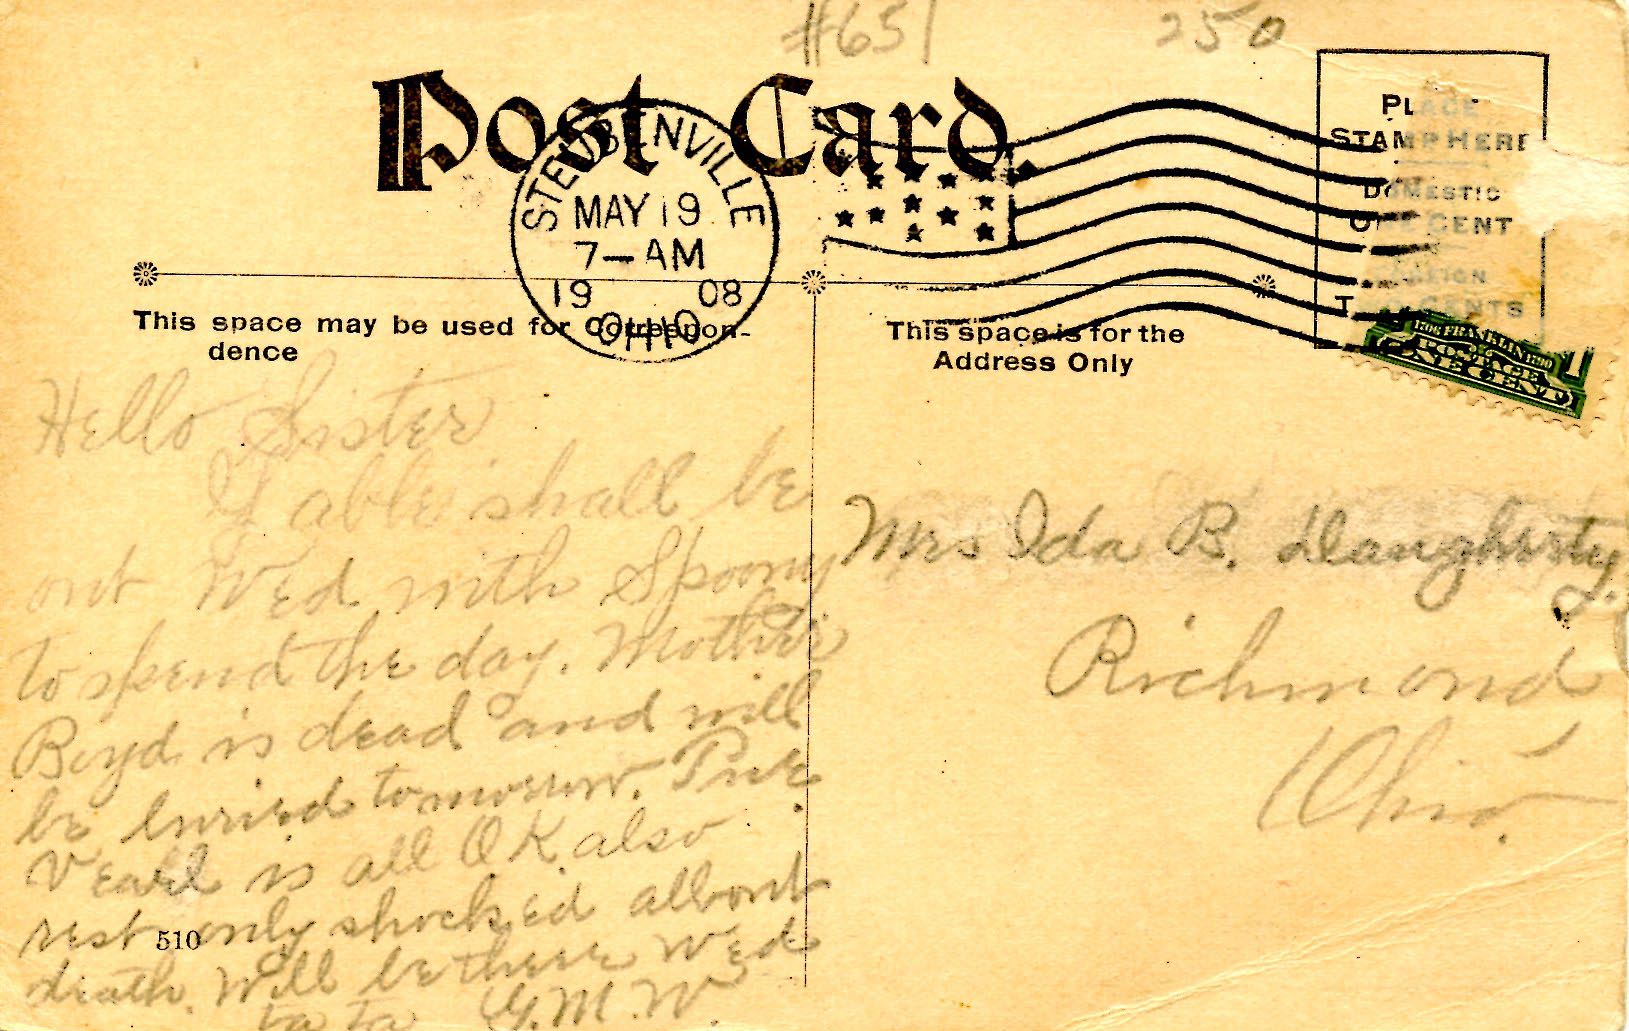 #651 250
Post Card.
STEUBENVILLE
MAY 19
7–AM
1908
OHIO
PLACE
STAMP HERE
DOMESTIC
ONE CENT
FOREIGN
TWO CENTS
This space may be used for Correspon-
dence
This space is for the
Address Only
1706 FRANKLIN 1790
POSTAGE
ONE CENT
1
Hello Sister
If able shall be
out Wed with Spoony
to spend the day. Mother
Boyd is dead and will
be buried tomorrow.
is all OK also
rest only shocked about
death. Will be there Wed
ta ta G.M.W.
510
Mrs Ida B. Daugherty.
Richmond
Ohio.